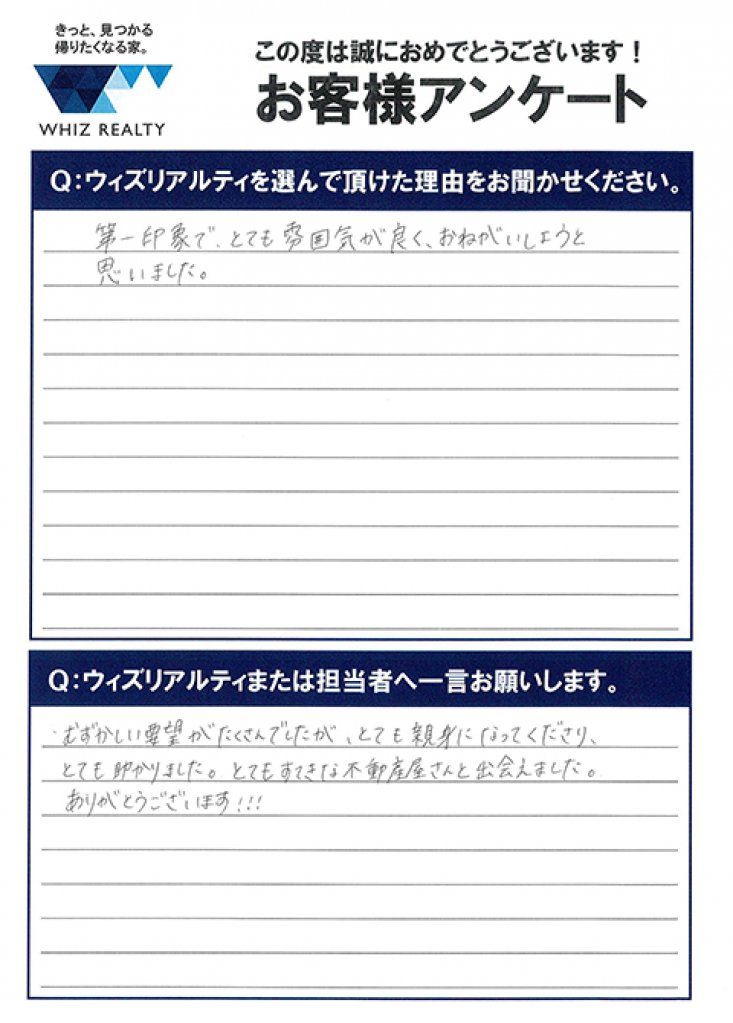 きっと、見つかる
帰りたくなる家。
WHIZ REALTY
この度は誠におめでとうございます！
お客様アンケート
Q：ウィズリアルティを選んで頂けた理由をお聞かせください。
第一印象で、とても雰囲気が良く、おねがいしようと
思いました。
Q：ウィズリアルティまたは担当者へ一言お願いします。
むずかしい要望がたくさんでしたが、とても親身になってくださり、
とても助かりました。とてもすてきな不動産屋さんと出会えました。
ありがとうございます！！！